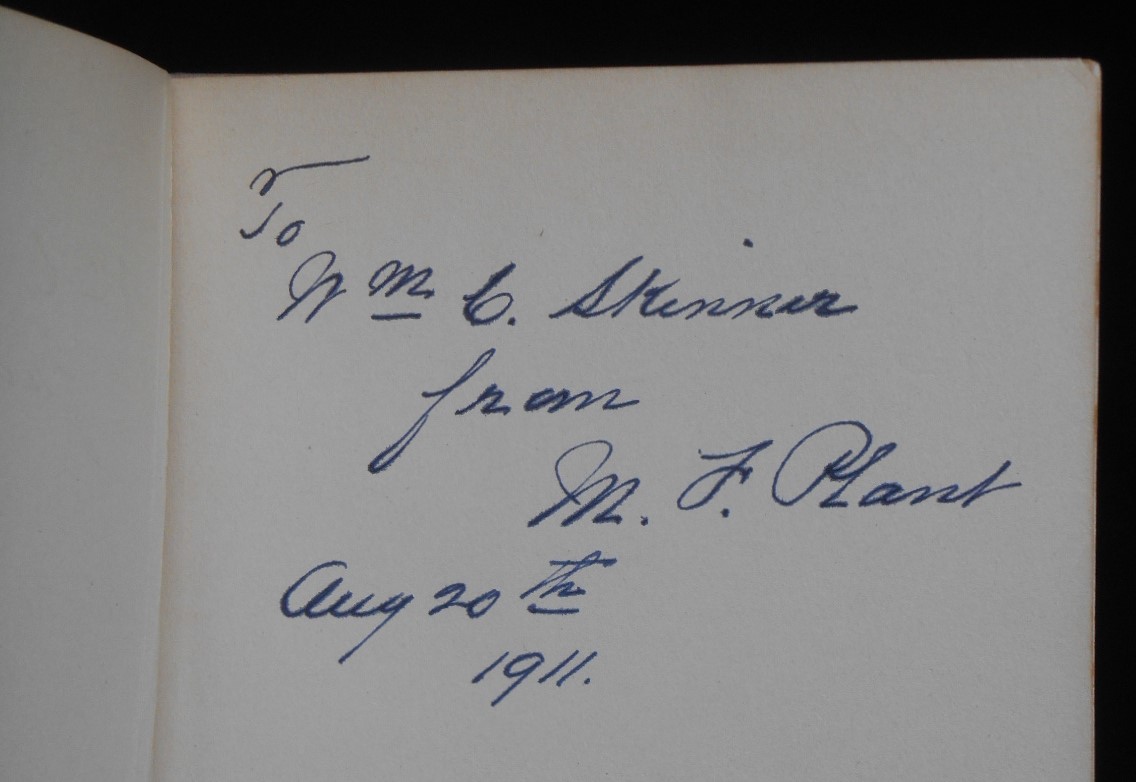 To
Wm C. Skinner
from
M. F. Plant
Aug 20th
1911.